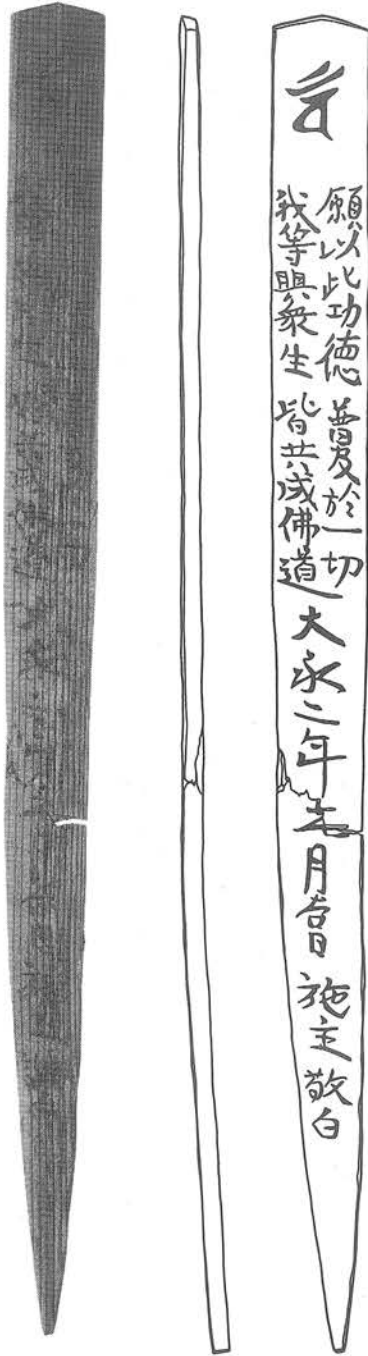 願以此功徳 普及於一切
我等與衆生 皆共成佛道
大永二年 月吉日 施主 敬白